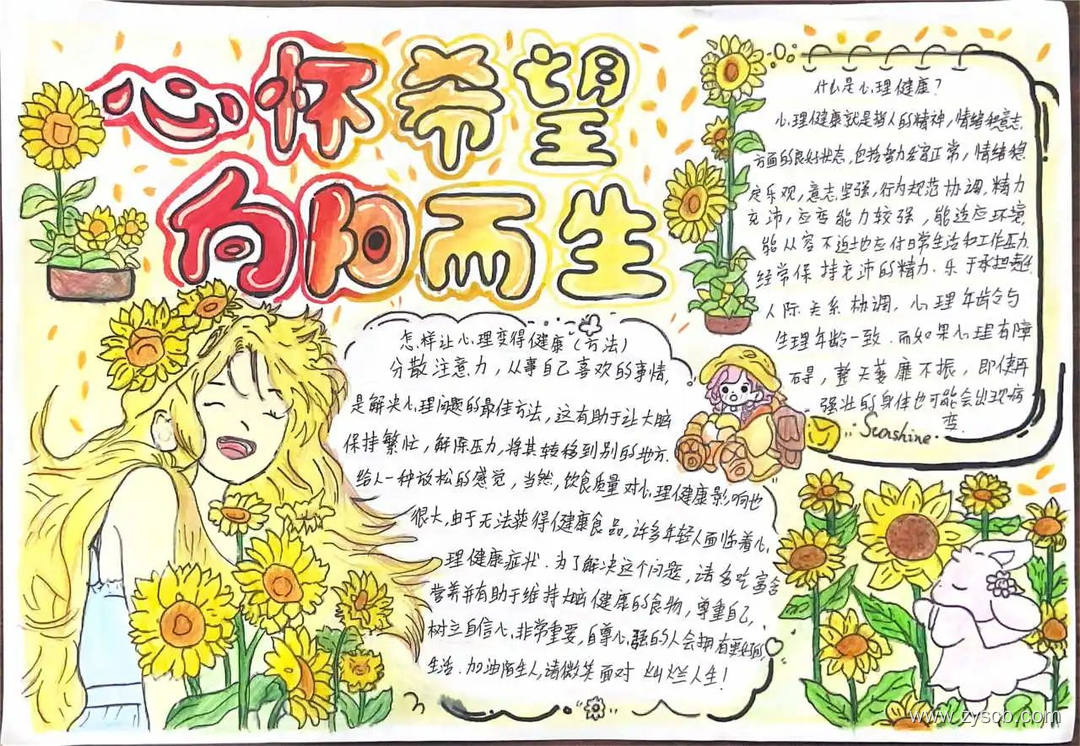 心怀希望
向阳而生
什么是心理健康?
心理健康就是指人的精神,情绪和意志
方面的良好状态,包括智力发育正常,情绪稳
定乐观,意志坚强,行为规范协调,精力
充沛,应变能力较强,能适应环境
能从容不迫地应付日常生活和工作压力
经常保持充沛的精力.乐于承担责任
人际关系协调,心理年龄与
生理年龄一致.而如果心理有障
碍,整天萎靡不振,即使再
强壮的身体也可能会出现病
变.
Sunshine
怎样让心理变得健康(方法)
分散注意力,从事自己喜欢的事情,
是解决心理问题的最佳方法,这有助于让大脑
保持繁忙,解除压力,将其转移到别的地方.
给人一种放松的感觉,当然,饮食质量对心理健康影响也
很大,由于无法获得健康食品,许多年轻人面临着心
理健康症状.为了解决这个问题,请多吃富含
营养并有助于维持大脑健康的食物,尊重自己,
树立自信心,非常重要,自尊心强的人会拥有更好的
生活.加油陌生人,请微笑面对灿烂人生!
www.zysob.com